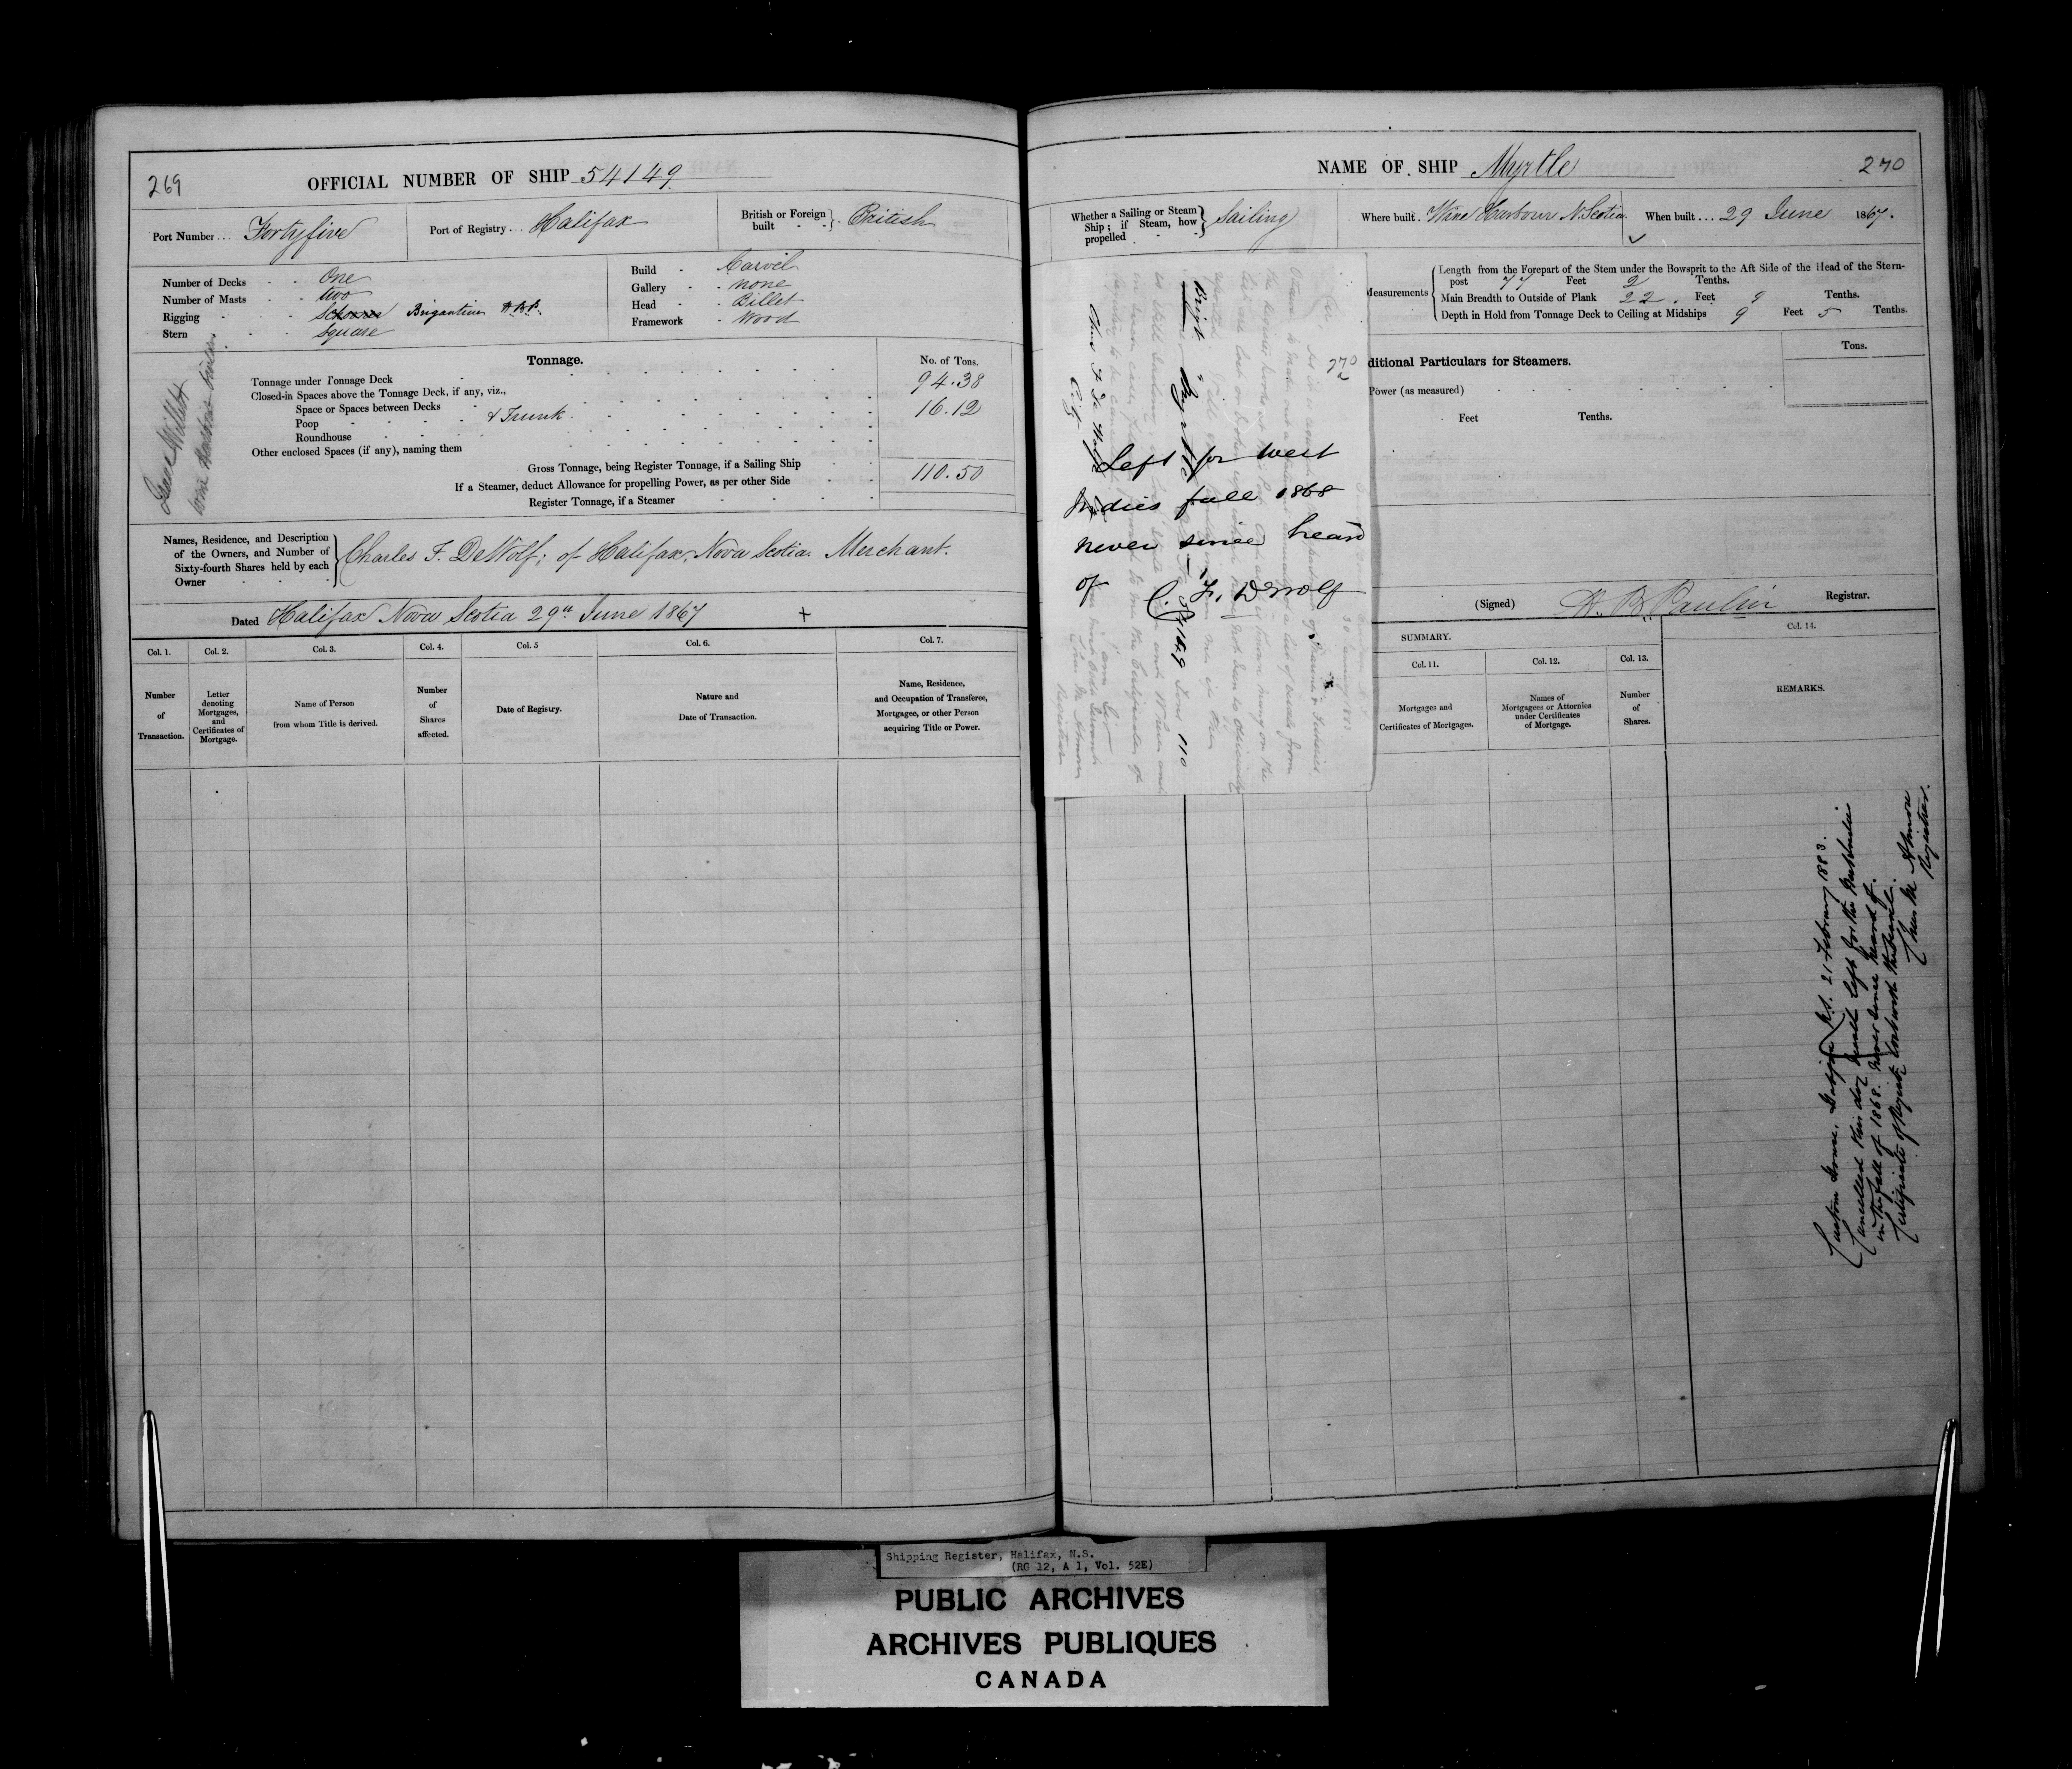 269
OFFICIAL NUMBER OF SHIP 54149
Port Number... Fortyfive
Port of Registry... Halifax
British or Foreign built - - British
Number of Decks - - One
Number of Masts - - two
Rigging - - Schooner Brigantine H.B.P.
Stern - - Square
Build - Carvel
Gallery - none
Head - Billet
Framework - Wood
Wine Harbour builder.
Tonnage.
No. of Tons.
Tonnage under Tonnage Deck 94.38
Closed-in Spaces above the Tonnage Deck, if any, viz.,
Space or Spaces between Decks 16.12
Poop - & Trunk
Roundhouse
Other enclosed Spaces (if any), naming them
Gross Tonnage, being Register Tonnage, if a Sailing Ship 110.50
If a Steamer, deduct Allowance for propelling Power, as per other Side
Register Tonnage, if a Steamer
Names, Residence, and Description
of the Owners, and Number of
Sixty-fourth Shares held by each
Owner
Charles F. DeWolf; of Halifax, Nova Scotia Merchant.
Dated Halifax Nova Scotia 29th June 1867 +
Col. 1.
Number
of
Transaction.
Col. 2.
Letter
denoting
Mortgages,
and
Certificates of
Mortgage.
Col. 3.
Name of Person
from whom Title is derived.
Col. 4.
Number
of
Shares
affected.
Col. 5
Date of Registry.
Col. 6.
Nature and
Date of Transaction.
Col. 7.
Name, Residence,
and Occupation of Transferee,
Mortgagee, or other Person
acquiring Title or Power.
NAME OF SHIP Myrtle
270
Whether a Sailing or Steam
Ship; if Steam, how
propelled
Sailing
Where built. Wine Harbour N. Scotia.
When built... 29 June 1867.
Measurements
Length from the Forepart of the Stem under the Bowsprit to the Aft Side of the Head of the Stern-
post 77 Feet 2 Tenths.
Main Breadth to Outside of Plank 22. Feet 9 Tenths.
Depth in Hold from Tonnage Deck to Ceiling at Midships 9 Feet 5 Tenths.
ditional Particulars for Steamers.
Tons.
Power (as measured)
Feet Tenths.
Brigt Myrtle
Tons 110
Left for West
Indies fall 1868
never since heard
of C. F. DeWolf
(Signed) H. B. Paulin Registrar.
SUMMARY.
Col. 11.
Mortgages and
Certificates of Mortgages.
Col. 12.
Names of
Mortgagees or Attornies
under Certificates
of Mortgage.
Col. 13.
Number
of
Shares.
Col. 14.
REMARKS.
Custom House, Halifax N.S. 21 February 1883.
Cancelled this day Vessel left for the West Indies
in the fall of 1868. Never since heard of.
Certificate of Registry lost with the Vessel.
Registrar.
Shipping Register, Halifax, N.S.
(RG 12, A 1, Vol. 52E)
PUBLIC ARCHIVES
ARCHIVES PUBLIQUES
CANADA